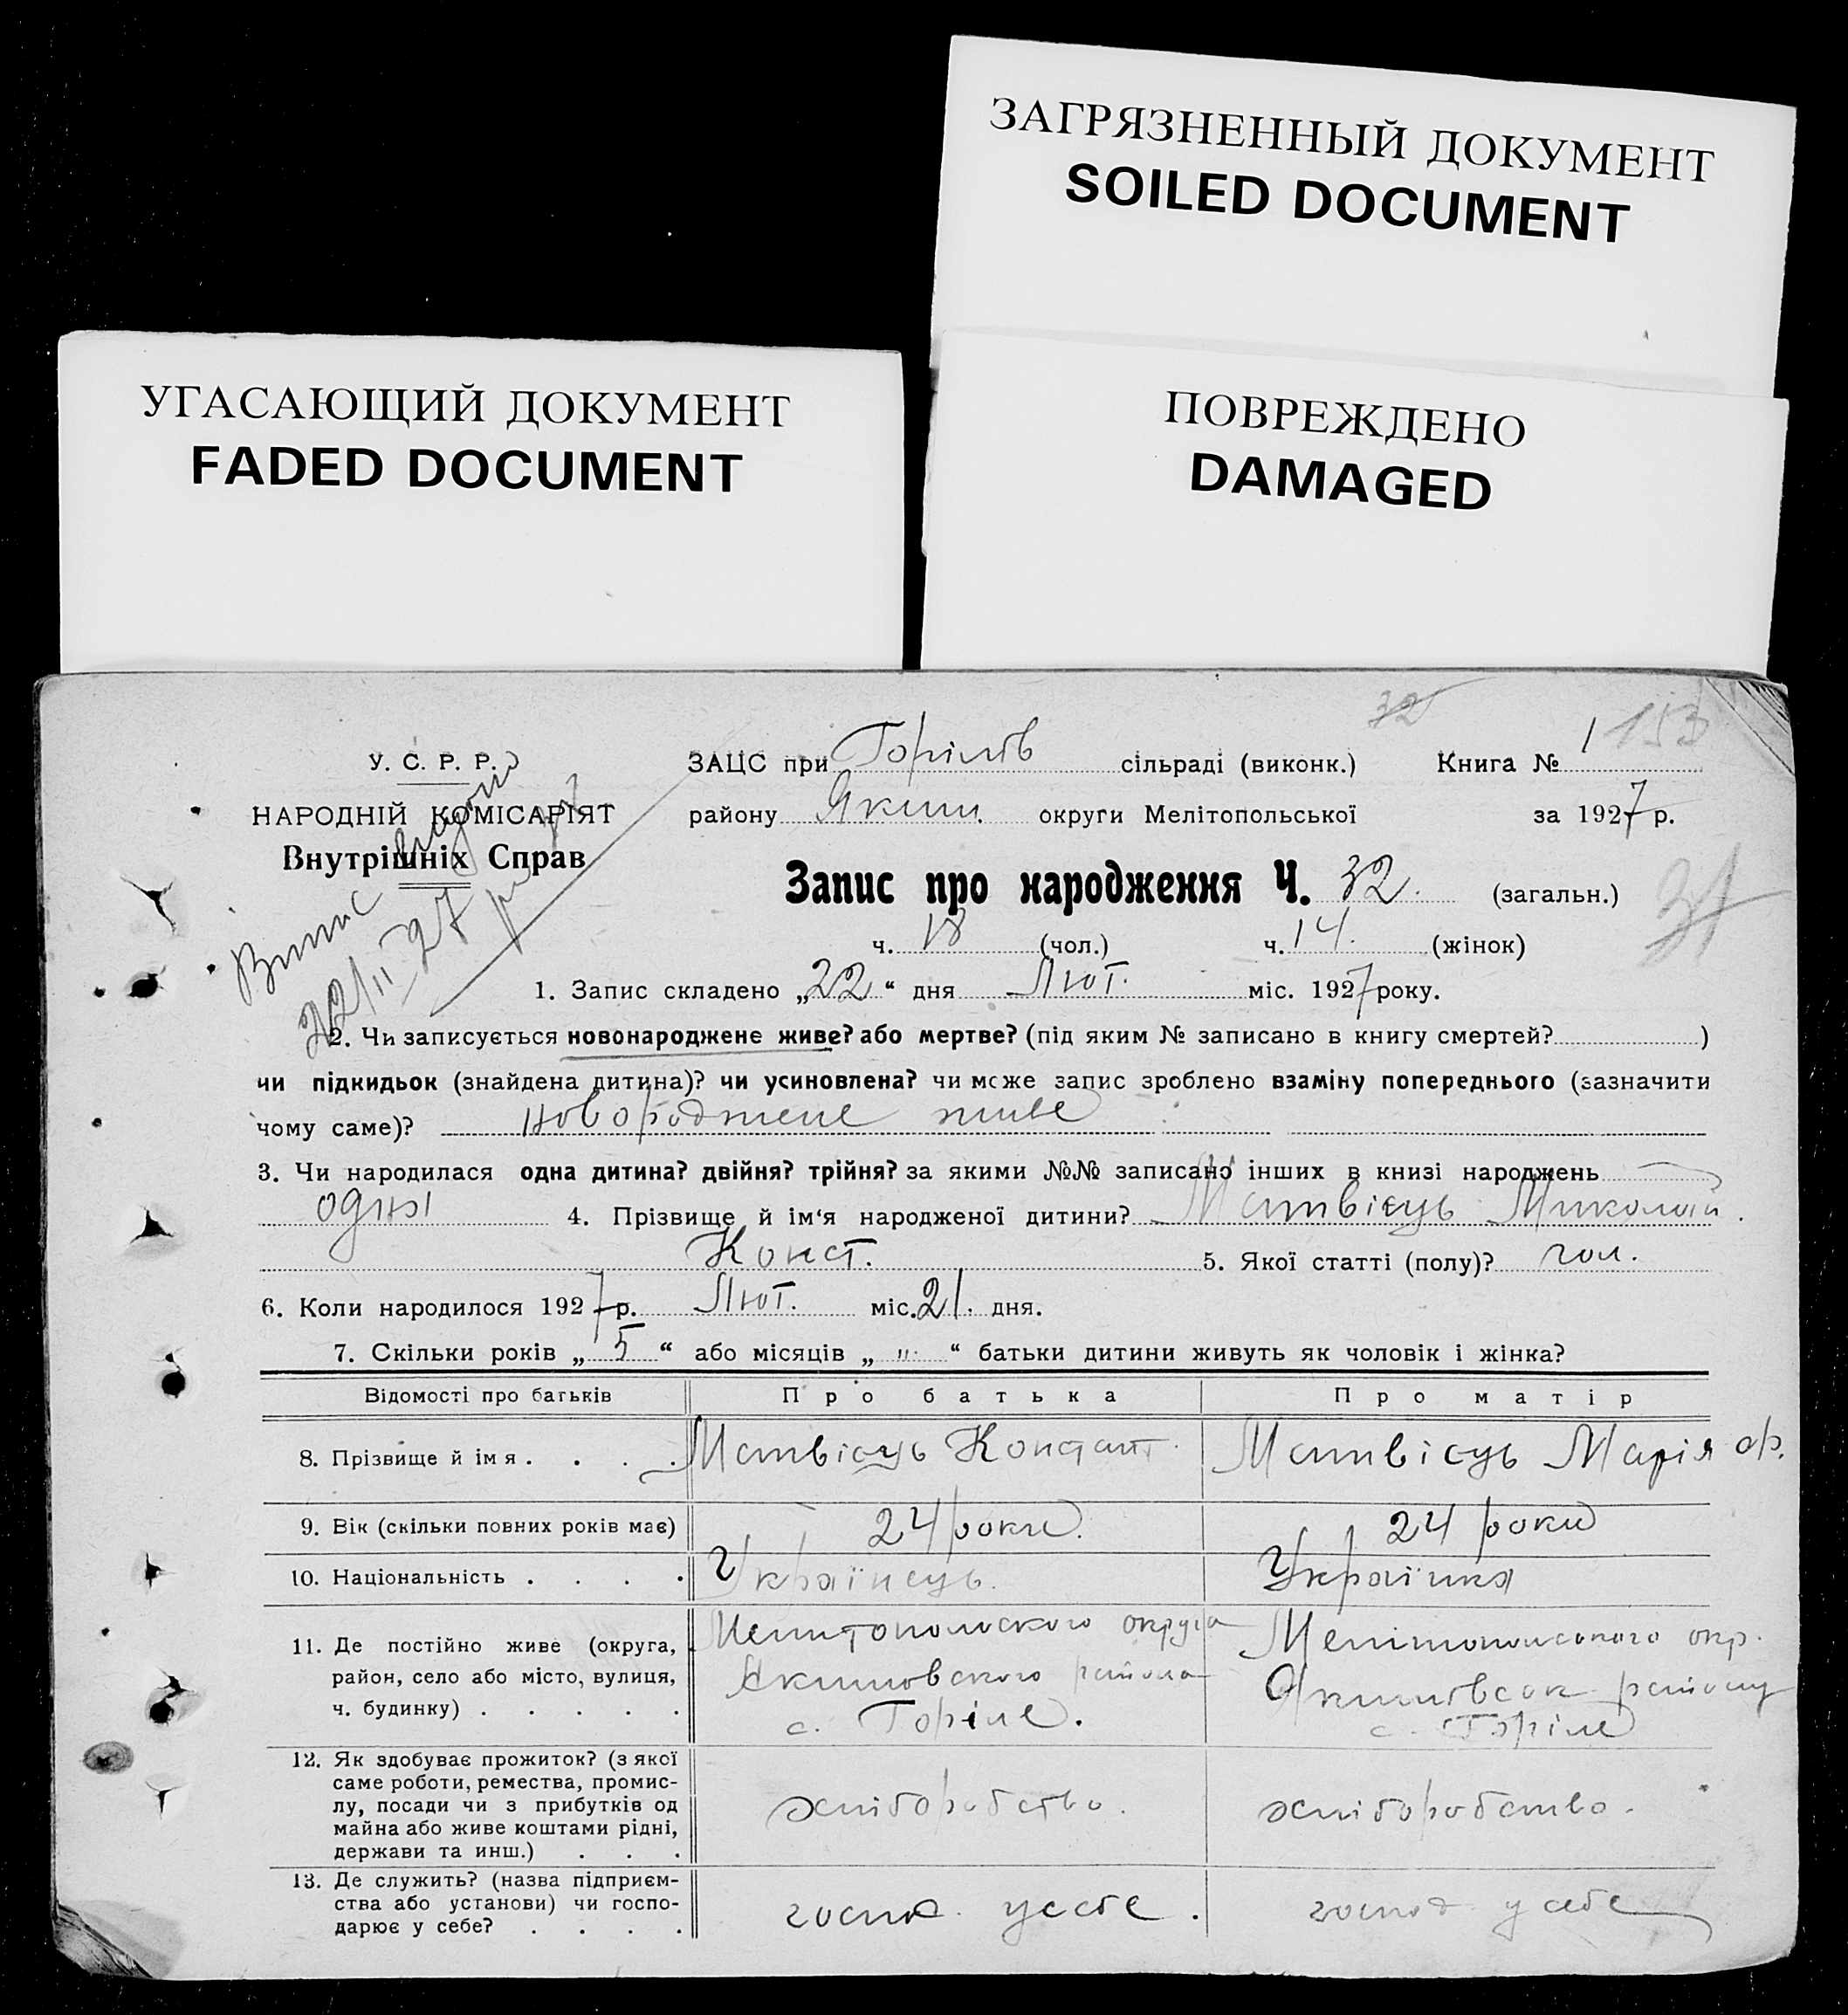 ЗАГРЯЗНЕННЫЙ ДОКУМЕНТ
SOILED DOCUMENT
УГАСАЮЩИЙ ДОКУМЕНТ
FADED DOCUMENT
ПОВРЕЖДЕНО
DAMAGED
32
153
У. С. Р. Р.
НАРОДНІЙ КОМІСАРІЯТ
Внутрішніх Справ
Випис видано
22/II-27 р
ЗАЦС при Горілів сільраді (виконк.) Книга № 1
району Яким. округи Мелітопольської за 1927 р.
Запис про народження Ч. 32. (загальн.)
31
ч. 18 (чол.) ч. 14. (жінок)
1. Запис складено „22“ дня Лют. міс. 1927 року.
2. Чи записується новонароджене живе? або мертве? (під яким № записано в книгу смертей? )
чи підкидьок (знайдена дитина)? чи усиновлена? чи може запис зроблено взаміну попереднього (зазначити
чому саме)? новороджене живе
3. Чи народилася одна дитина? двійня? трійня? за якими №№ записано інших в книзі народжень
одна 4. Прізвище й ім‘я народженої дитини? Матвієць Миколай
Конст. 5. Якої статті (полу)? чол.
6. Коли народилося 1927 р. Лют. міс. 21. дня.
7. Скільки років „ 5 “ або місяців „ " “ батьки дитини живуть як чоловік і жінка?
Відомості про батьків Про батька Про матір
8. Прізвище й імя . . . . Матвієць Констант. Матвієць Марія
9. Вік (скільки повних років має) 24 роки. 24 роки
10. Національність . . . . Українець. Українка
11. Де постійно живе (округа,
район, село або місто, вулиця,
ч. будинку) . . . . .
Мелитопольского округа
Якимовского района
с. Горіле.
Мелітопольського окр.
Якимовськ району
с. Горіле
12. Як здобуває прожиток? (з якої
саме роботи, ремества, промис-
лу, посади чи з прибутків од
майна або живе коштами рідні,
держави та инш.) . . .
хліборобство.
хліборобство.
13. Де служить? (назва підприєм-
ства або установи) чи госпо-
дарює у себе? . . . .
госпо. у себе.
господ. у себе